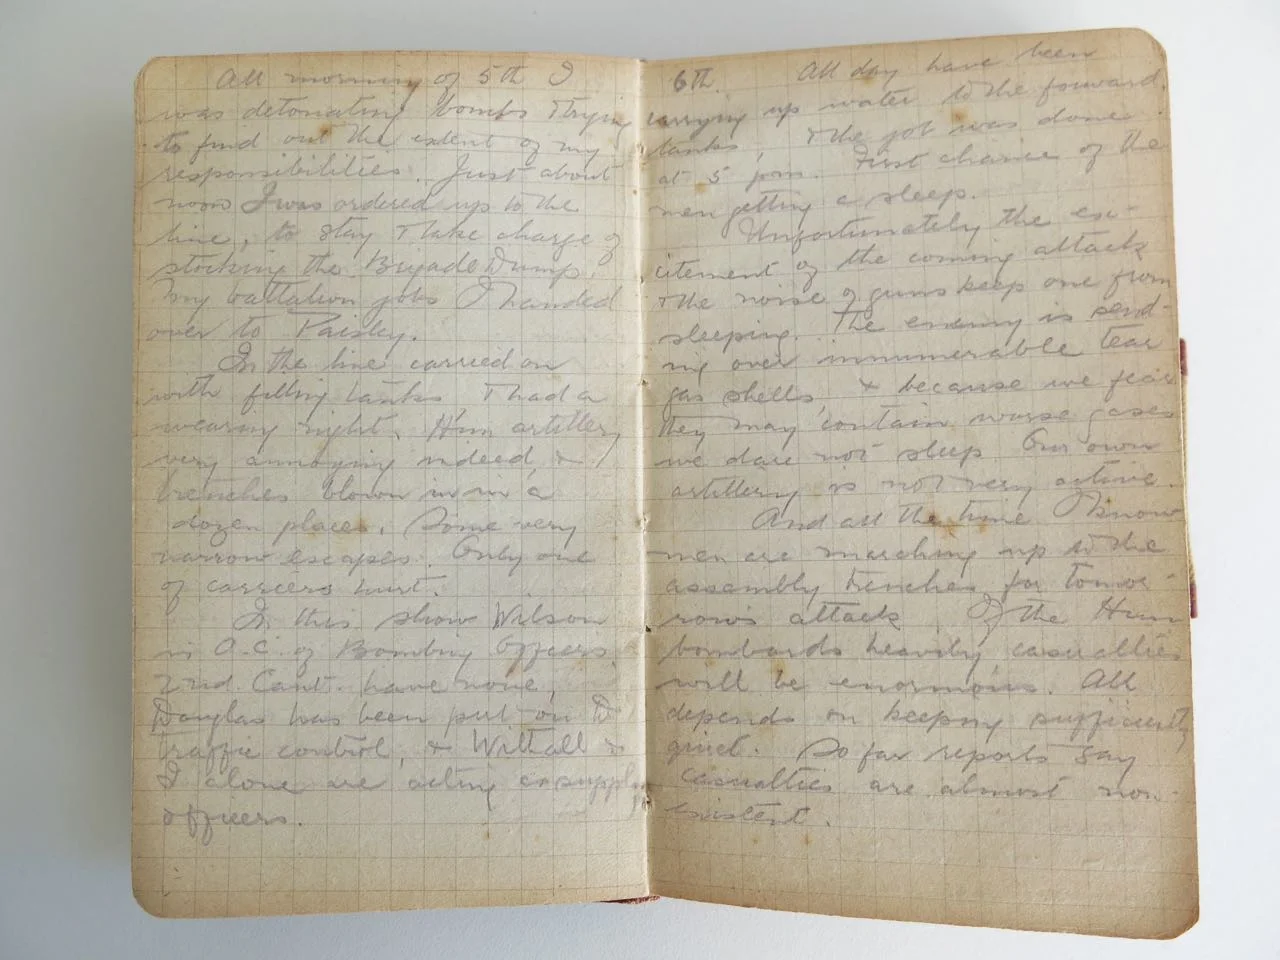 All morning of 5th I
was detonating bombs & trying
to find out the extent of my
responsibilities. Just about
noon I was ordered up to the
line, to stay & take charge of
stocking the Brigade Dump.
My battalion jobs I handed
over to Paisley.
In the line carried on
with filling tanks, & had a
wearing night. Hun artillery
very annoying indeed, &
trenches blown in in a
dozen places. Some very
narrow escapes. Only one
of carriers hurt.
In this show Wilson
is O.C. of Bombing Officers.
2nd. Cant. have none,
Douglas has been put on
traffic control, & Withall &
I alone are acting as supply
officers.
6th. All day have been
carrying up water to the forward
tanks, & the job was done
at 5 pm. First chance of the
men getting a sleep.
Unfortunately the ex-
citement of the coming attack
& the noise of guns keep one from
sleeping. The enemy is send-
ing over innumerable tear
gas shells, & because we fear
they may contain worse gases
we dare not sleep. Our own
artillery is not very active.
And all the time I know
men are marching up to the
assembly trenches for tomor-
rows attack. If the Hun
bombards heavily, casualties
will be enormous. All
depends on keeping sufficiently
quiet. So far reports say
casualties are almost non-
existent.